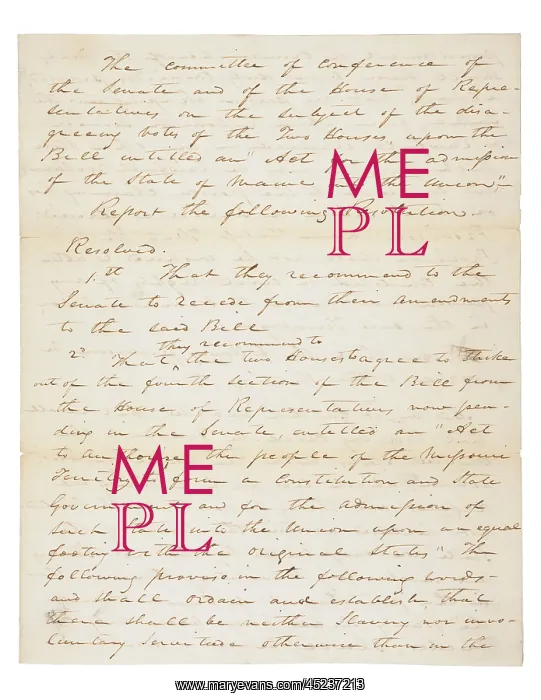 The committee of conference of
the Senate and of the House of Repre-
sentatives on the subject of the disa-
greeing votes of the Two Houses, upon the
Bill entitled an "Act for the admission
of the State of Maine into the Union,"
Report the following Resolution.
Resolved.
1st That they recommend to the
Senate to recede from their amendments
to the said Bill
they recommend to
2d That ^ the two Houses agree to strike
out of the fourth section of the Bill from
the House of Representatives now pen-
ding in the Senate, entitled an "Act
to authorize the people of the Missouri
Territory to form a Constitution and State
Government and for the admission of
such State into the Union upon an equal
footing with the original States" The
following proviso in the following words-
and shall ordain and establish that
there shall be neither Slavery nor invo-
luntary Servitude otherwise than in the
ME
PL
ME
PL
www.maryevans.com/45237213